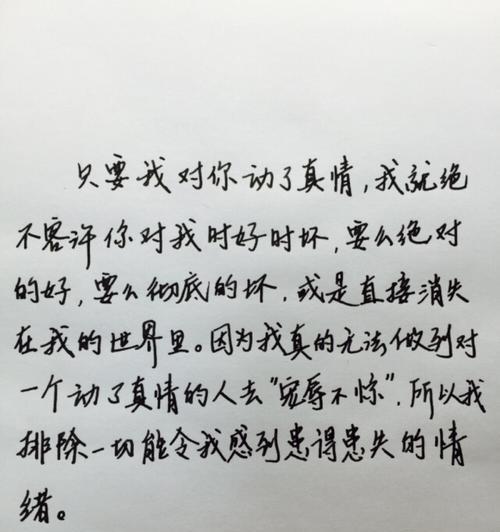 只要我对你动了真情,我就绝
不容许你对我时好时坏,要么绝对
的好,要么彻底的坏,或是直接消失
在我的世界里。因为我真的无法做到对
一个动了真情的人去“宠辱不惊”,所以我
排除一切能令我感到患得患失的情
绪。